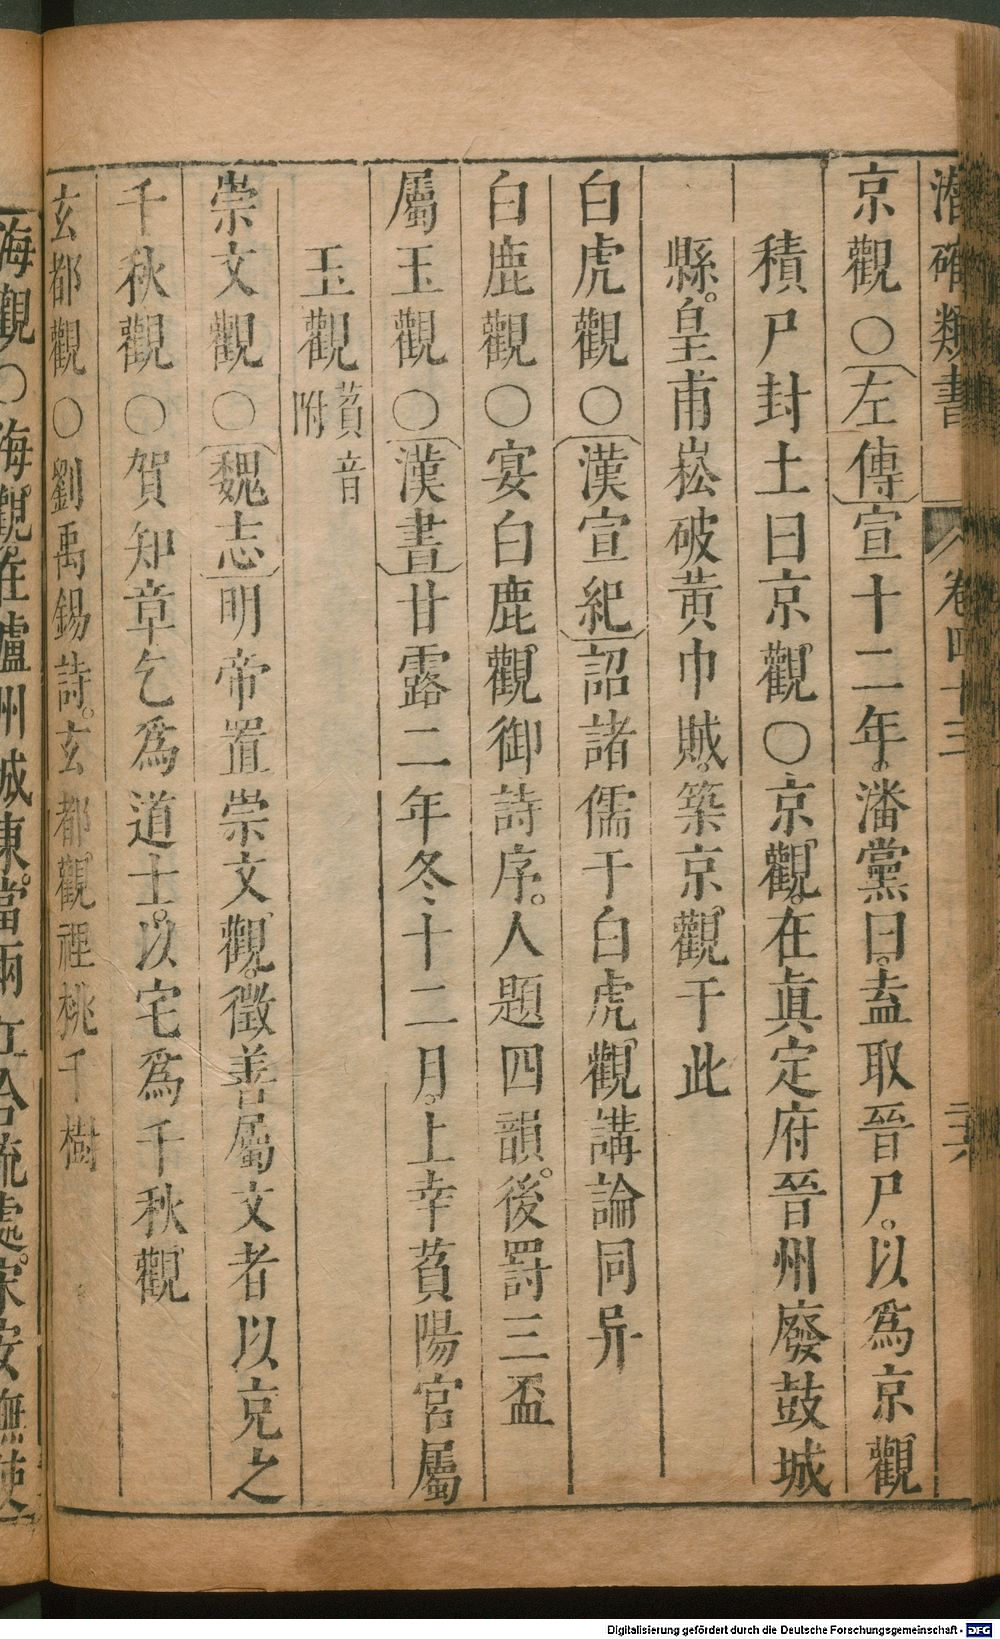 潛確類書 卷四十三
京觀○左傳宣十二年。潘黨曰。盍取晉尸。以爲京觀
積尸封土曰京觀○京觀。在眞定府晉州廢鼓城
縣。皇甫嵩破黃巾賊。築京觀于此
白虎觀○漢宣紀詔諸儒于白虎觀講論同异
白鹿觀○宴白鹿觀御詩序。人題四韻。後罸三盃
屬玉觀○漢書甘露二年冬十二月。上幸萯陽宮屬
玉觀萯音附
崇文觀○魏志明帝置崇文觀。徵善屬文者以克之
千秋觀○賀知章乞爲道士。以宅爲千秋觀
玄都觀○劉禹錫詩。玄都觀裡桃千樹
海觀○海觀在瀘州城東。當兩江合流處。宋安撫使